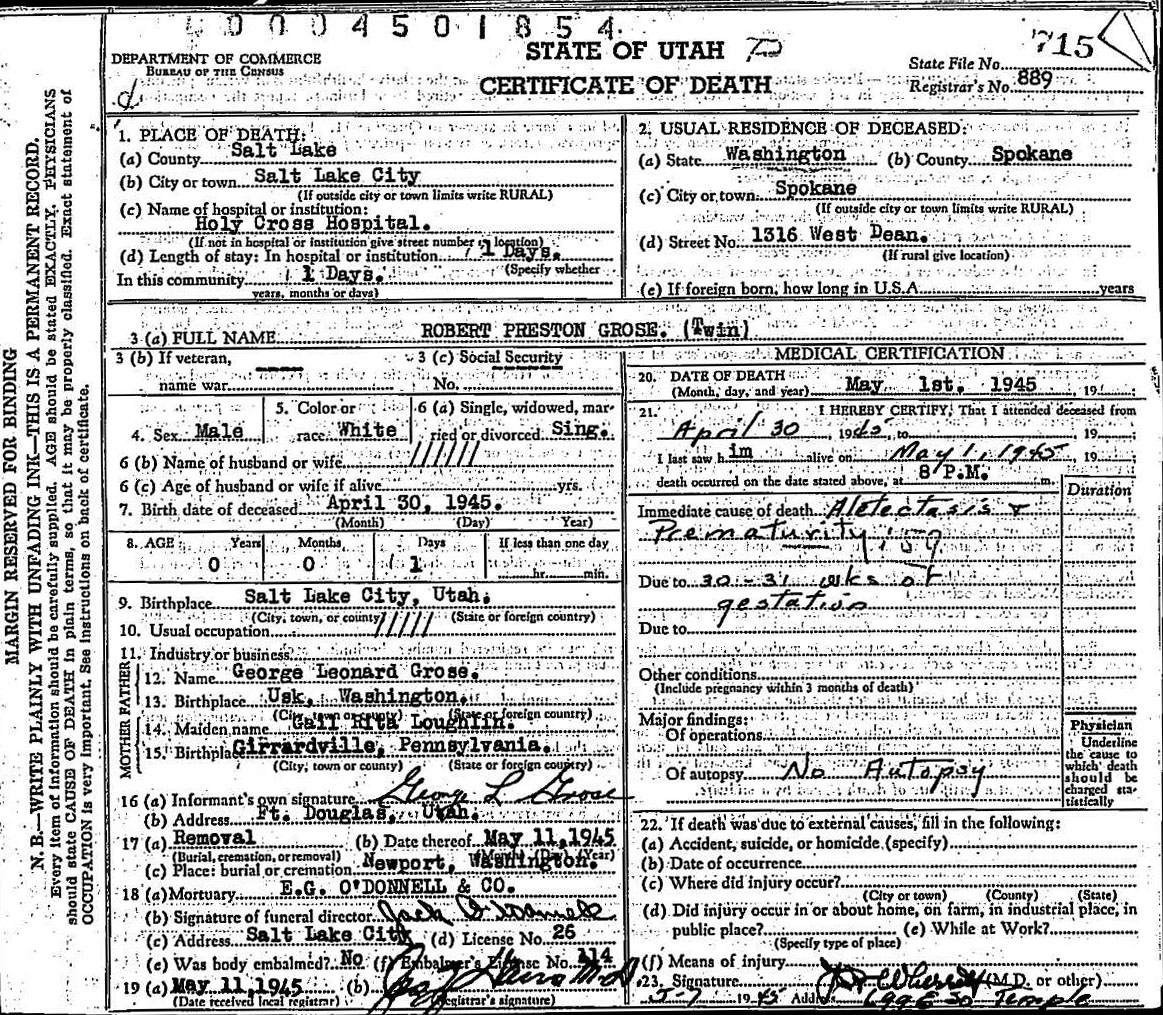 0004501854
DEPARTMENT OF COMMERCE
BUREAU OF THE CENSUS
STATE OF UTAH
CERTIFICATE OF DEATH
715
State File No.
Registrar's No. 889
1. PLACE OF DEATH:
(a) County Salt Lake
(b) City or town Salt Lake City
(If outside city or town limits write RURAL)
(c) Name of hospital or institution:
Holy Cross Hospital.
(If not in hospital or institution give street number or location)
(d) Length of stay: In hospital or institution 1 Days.
(Specify whether
In this community 1 Days.
years, months or days)
2. USUAL RESIDENCE OF DECEASED:
(a) State Washington (b) County Spokane
(c) City or town Spokane
(If outside city or town limits write RURAL)
(d) Street No. 1316 West Dean.
(If rural give location)
(e) If foreign born, how long in U.S.A. years
3 (a) FULL NAME ROBERT PRESTON GROSE. (Twin)
3 (b) If veteran,
name war
3 (c) Social Security
No.
4. Sex Male
5. Color or
race White
6 (a) Single, widowed, mar-
ried or divorced Sing.
6 (b) Name of husband or wife //////
6 (c) Age of husband or wife if alive yrs.
7. Birth date of deceased April 30, 1945.
(Month) (Day) Year)
8. AGE Years Months Days If less than one day
0 0 1 hr. min.
9. Birthplace Salt Lake City, Utah.
(City, town, or county) (State or foreign country)
10. Usual occupation /////
11. Industry or business
FATHER
12. Name George Leonard Grose.
13. Birthplace Usk, Washington.
(City, town or county) (State or foreign country)
MOTHER
14. Maiden name Gail Rita Loughlin.
15. Birthplace Girrardville, Pennsylvania.
(City, town or county) (State or foreign country)
16 (a) Informant's own signature George L Grose
(b) Address Ft. Douglas, Utah.
17 (a) Removal (b) Date thereof May 11, 1945
(Burial, cremation, or removal) (Month) (Day) (Year)
(c) Place: burial or cremation Newport, Washington.
18 (a) Mortuary E.G. O'DONNELL & CO.
(b) Signature of funeral director Jack O'Donnell
(c) Address Salt Lake City (d) License No. 26
(e) Was body embalmed? No (f) Embalmer's License No. 114
19 (a) May 11, 1945 (b)
(Date received local registrar) (Registrar's signature)
MEDICAL CERTIFICATION
20. DATE OF DEATH
(Month, day, and year) May 1st. 1945 , 19
21. I HEREBY CERTIFY, That I attended deceased from
April 30 , 1945, to , 19
I last saw h im alive on May 1, 1945 , 19
death occurred on the date stated above, at 8 P.M. m.
Duration
Immediate cause of death Aletectasis &
Prematurity
Due to 30-31 wks of
gestation
Due to
Other conditions
(Include pregnancy within 3 months of death)
Major findings:
Of operations
Of autopsy No Autopsy
Physician
Underline
the cause to
which death
should be
charged sta-
tistically
22. If death was due to external causes, fill in the following:
(a) Accident, suicide, or homicide (specify)
(b) Date of occurrence
(c) Where did injury occur?
(City or town) (County) (State)
(d) Did injury occur in or about home, on farm, in industrial place, in
public place? (e) While at Work?
(Specify type of place)
(f) Means of injury
23. Signature (M.D. or other)
5-7 1945 Address 699 E So Temple
MARGIN RESERVED FOR BINDING
N. B.—WRITE PLAINLY WITH UNFADING INK—THIS IS A PERMANENT RECORD.
Every item of information should be carefully supplied. AGE should be stated EXACTLY. PHYSICIANS
should state CAUSE OF DEATH in plain terms, so that it may be properly classified. Exact statement of
OCCUPATION is very important. See instructions on back of certificate.